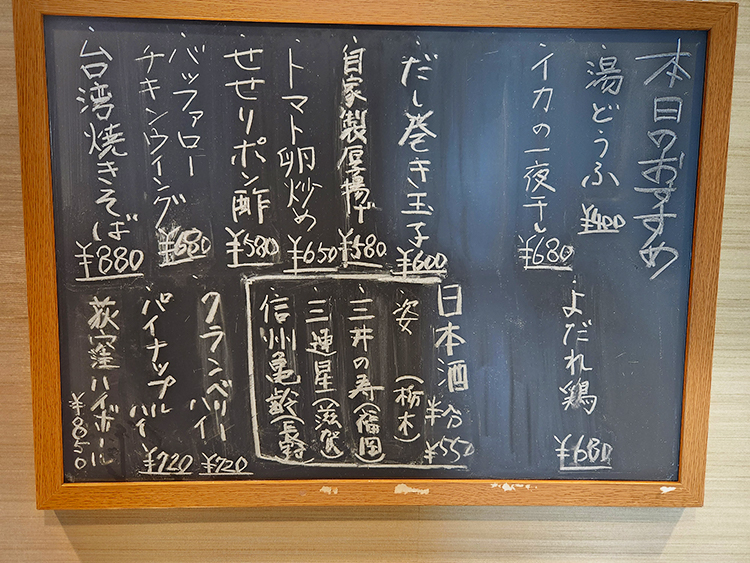 本日のおすすめ
湯どうふ
¥400
イカの一夜干し
¥680
だし巻き玉子
¥600
自家製厚揚げ
¥580
トマト卵炒め
¥650
せせりポン酢
¥580
バッファロー
チキンウイング
¥680
台湾焼きそば
¥880
よだれ鶏
¥680
日本酒 半合 ¥550
姿 (栃木)
三井の寿(福岡)
三連星(滋賀)
信州亀齢(長野)
クランベリー
ハイ
¥720
パイナップル
ハイ
¥720
荻窪ハイボール
¥850